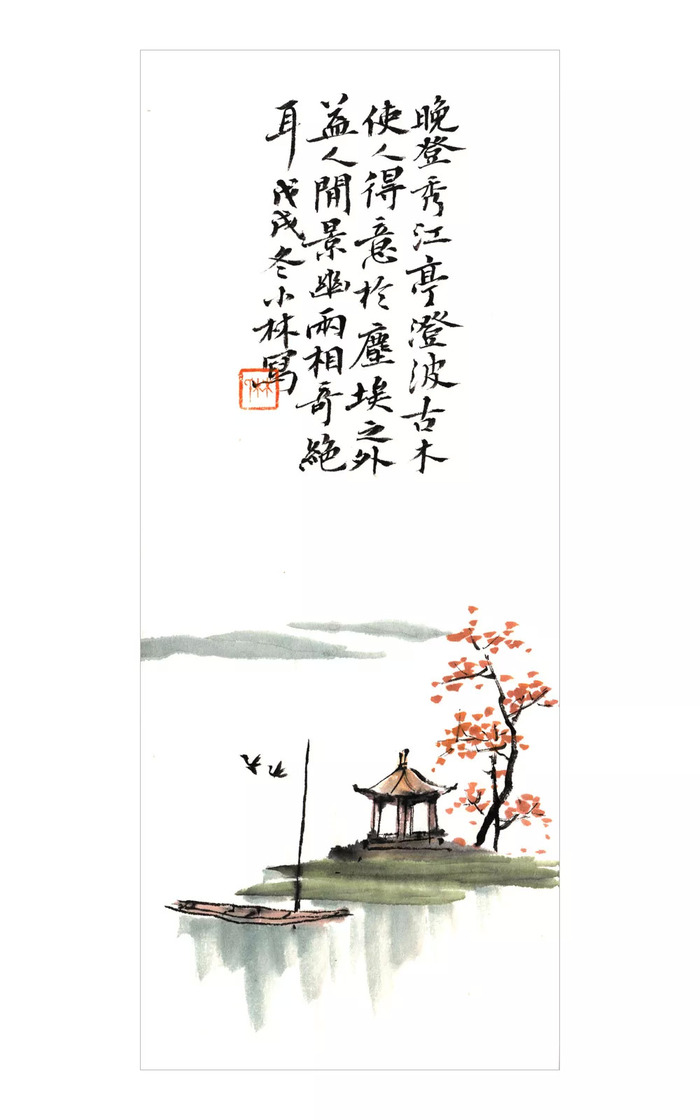 晚登秀江亭澄波古木
使人得意於塵埃之外
益人閒景幽兩相奇絕
耳 戊戌冬小林寫
林